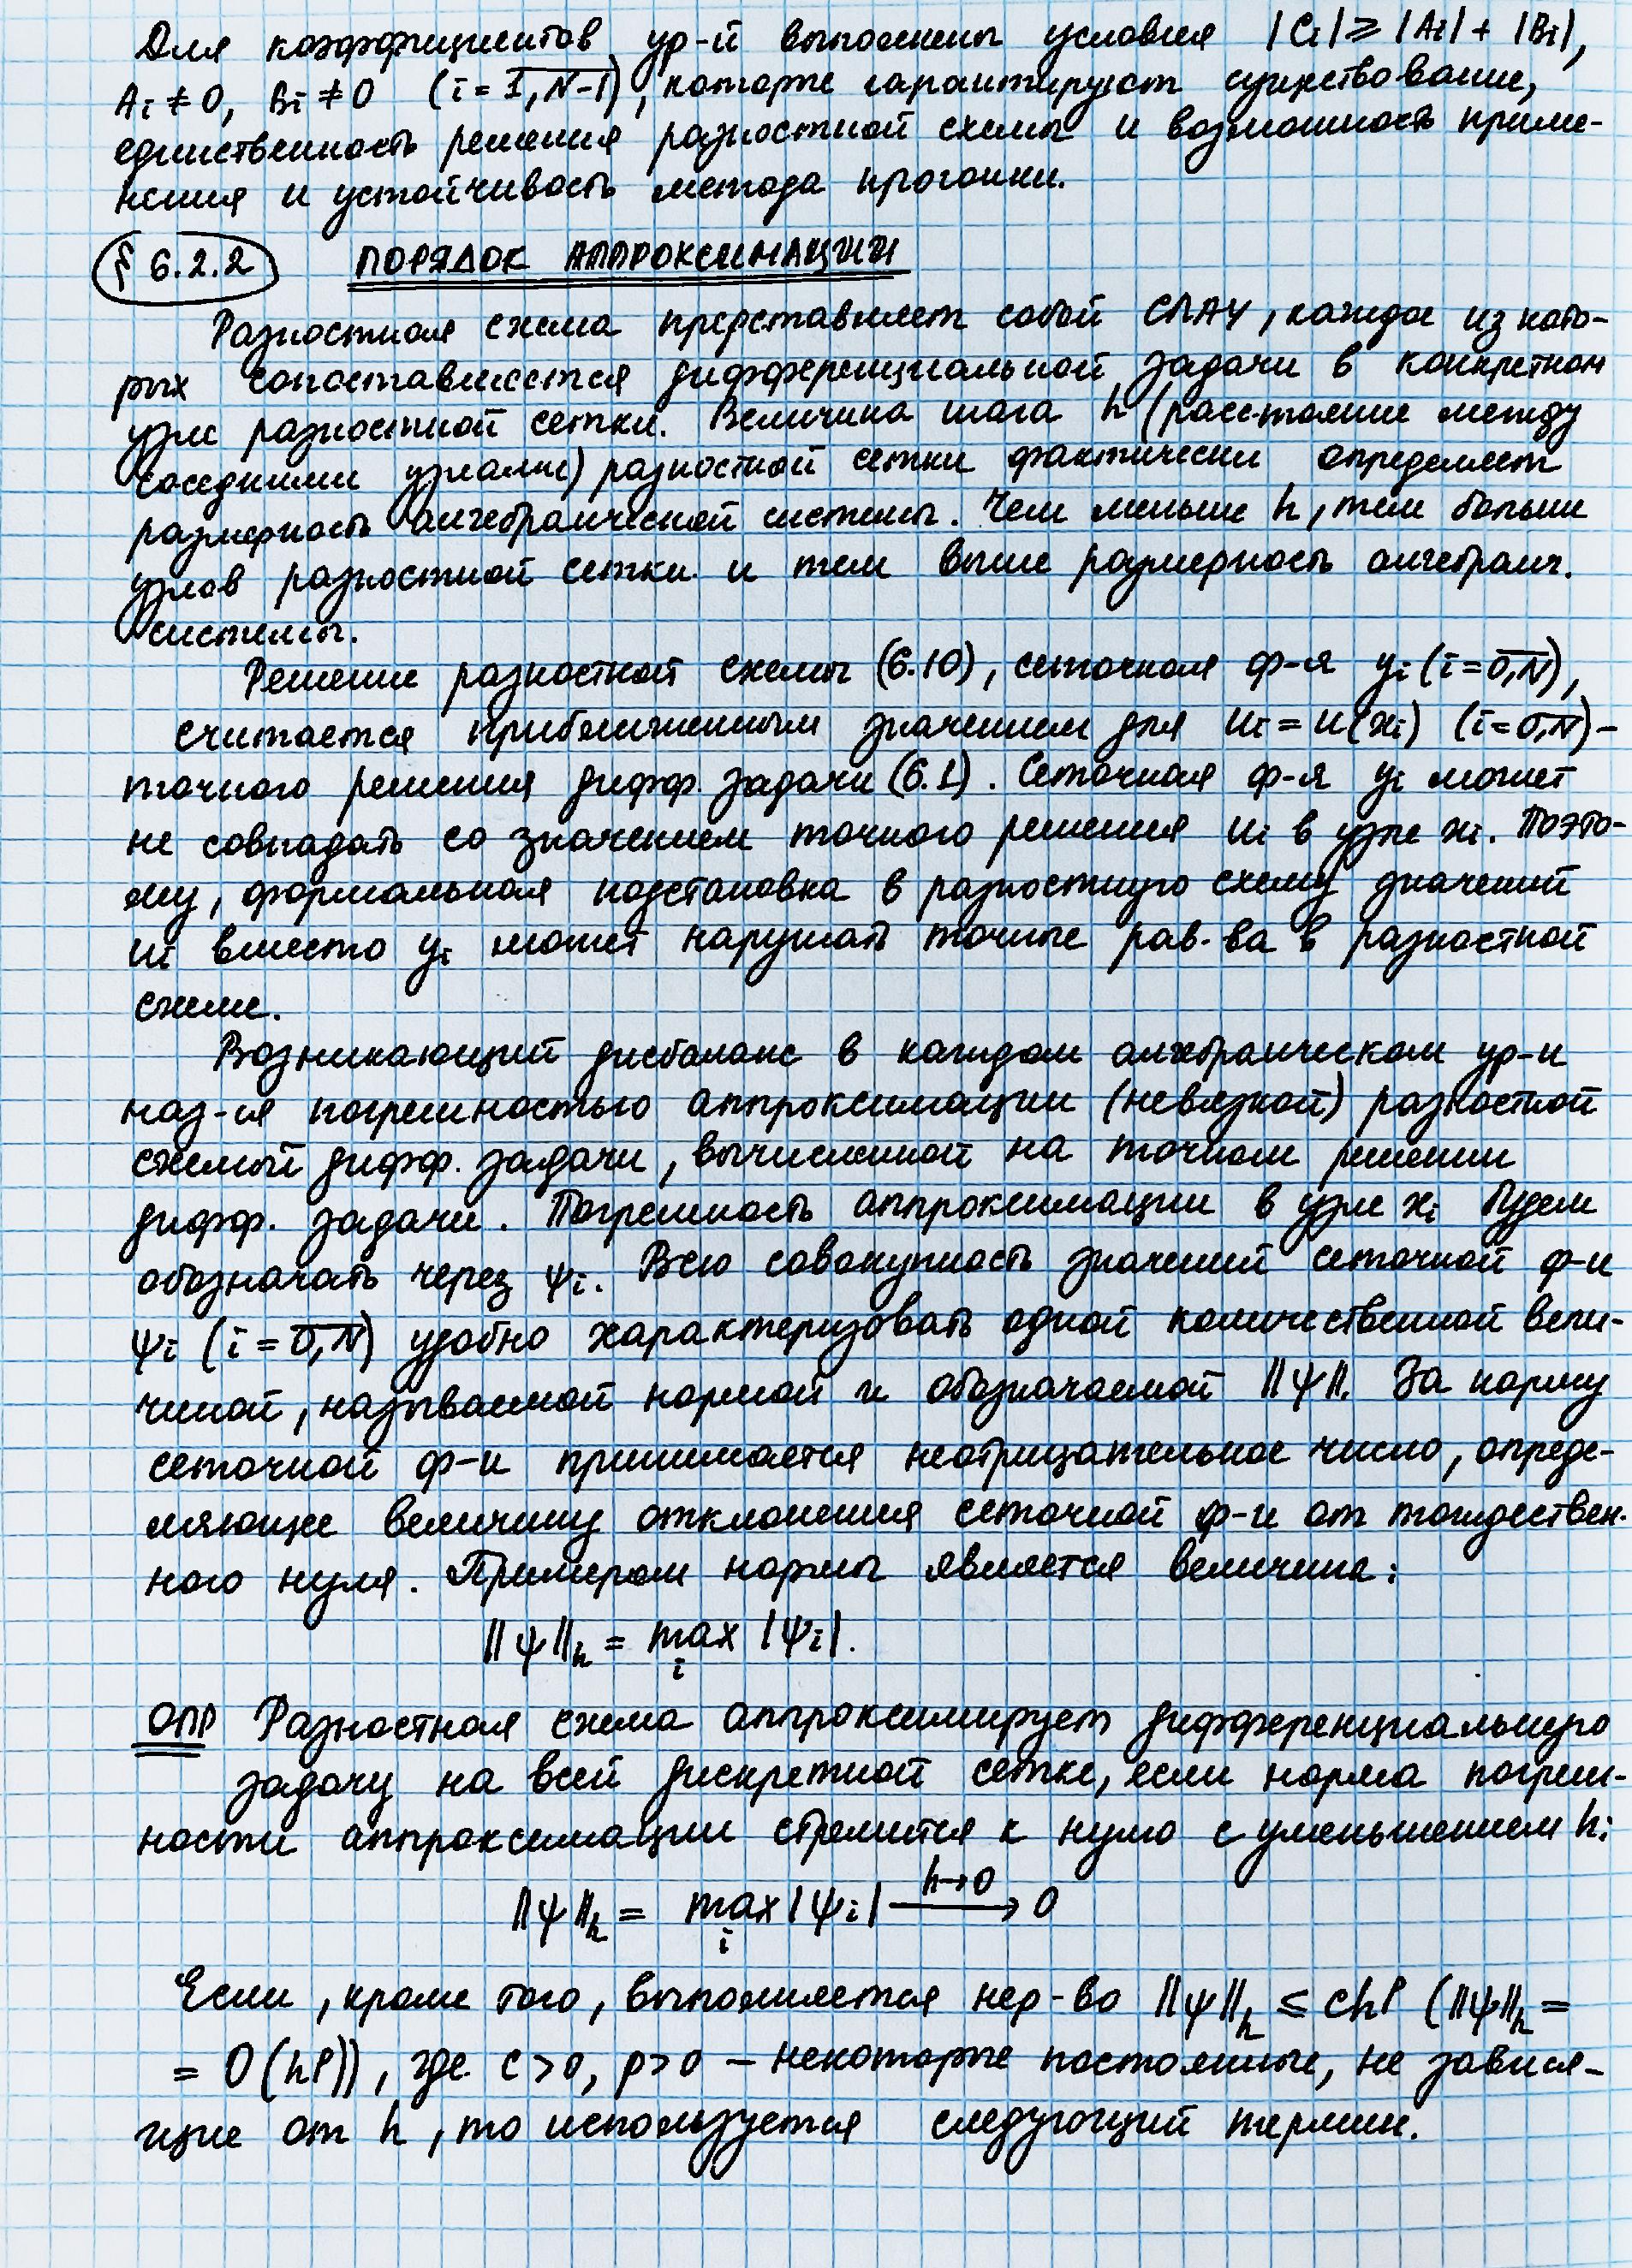 Для коэффициентов ур-й выполнены условия |Ci| ≥ |Ai| + |Bi|,
Ai ≠ 0, Bi ≠ 0 (i = 1,N-1), которые гарантируют существование,
единственность решения разностной схемы и возможность приме-
нения и устойчивость метода прогонки.
§ 6.2.2 ПОРЯДОК АППРОКСИМАЦИИ
Разностная схема представляет собой СЛАУ, каждое из кото-
рых сопоставляется дифференциальной задачи в конкретном
узле разностной сетки. Величина шага h (расстояние между
соседними узлами) разностной сетки фактически определяет
размерность алгебраической системы. Чем меньше h, тем больше
узлов разностной сетки и тем выше размерность алгебраич.
системы.
Решение разностной схемы (6.10), сеточная ф-я yi (i = 0,N),
считается приближенным значением для ui = u(xi) (i = 0,N) -
точного решения дифф. задачи (6.1). Сеточная ф-я yi может
не совпадать со значением точного решения ui в узле xi. Поэто-
му, формальная подстановка в разностную схему значений
ui вместо yi может нарушать точные рав-ва в разностной
схеме.
Возникающий дисбаланс в каждом алгебраическом ур-и
наз-ся погрешностью аппроксимации (невязкой) разностной
схемой дифф. задачи, вычисленной на точном решении
дифф. задачи. Погрешность аппроксимации в узле xi будем
обозначать через ψi. Всю совокупность значений сеточной ф-и
ψi (i = 0,N) удобно характеризовать одной количественной вели-
чиной, называемой нормой и обозначаемой ||ψ||. За норму
сеточной ф-и принимается неотрицательное число, опреде-
ляющее величину отклонения сеточной ф-и от тождествен-
ного нуля. Примером нормы является величина:
||ψ||h = max |ψi|.
i
ОПР Разностная схема аппроксимирует дифференциальную
задачу на всей дискретной сетке, если норма погреш-
ности аппроксимации стремится к нулю с уменьшением h:
||ψ||h = max |ψi| h→0 → 0
i
Если, кроме того, выполняется нер-во ||ψ||h ≤ ch^p (||ψ||h =
= O(h^p)), где c > 0, p > 0 – некоторые постоянные, не завися-
щие от h, то используется следующий термин.